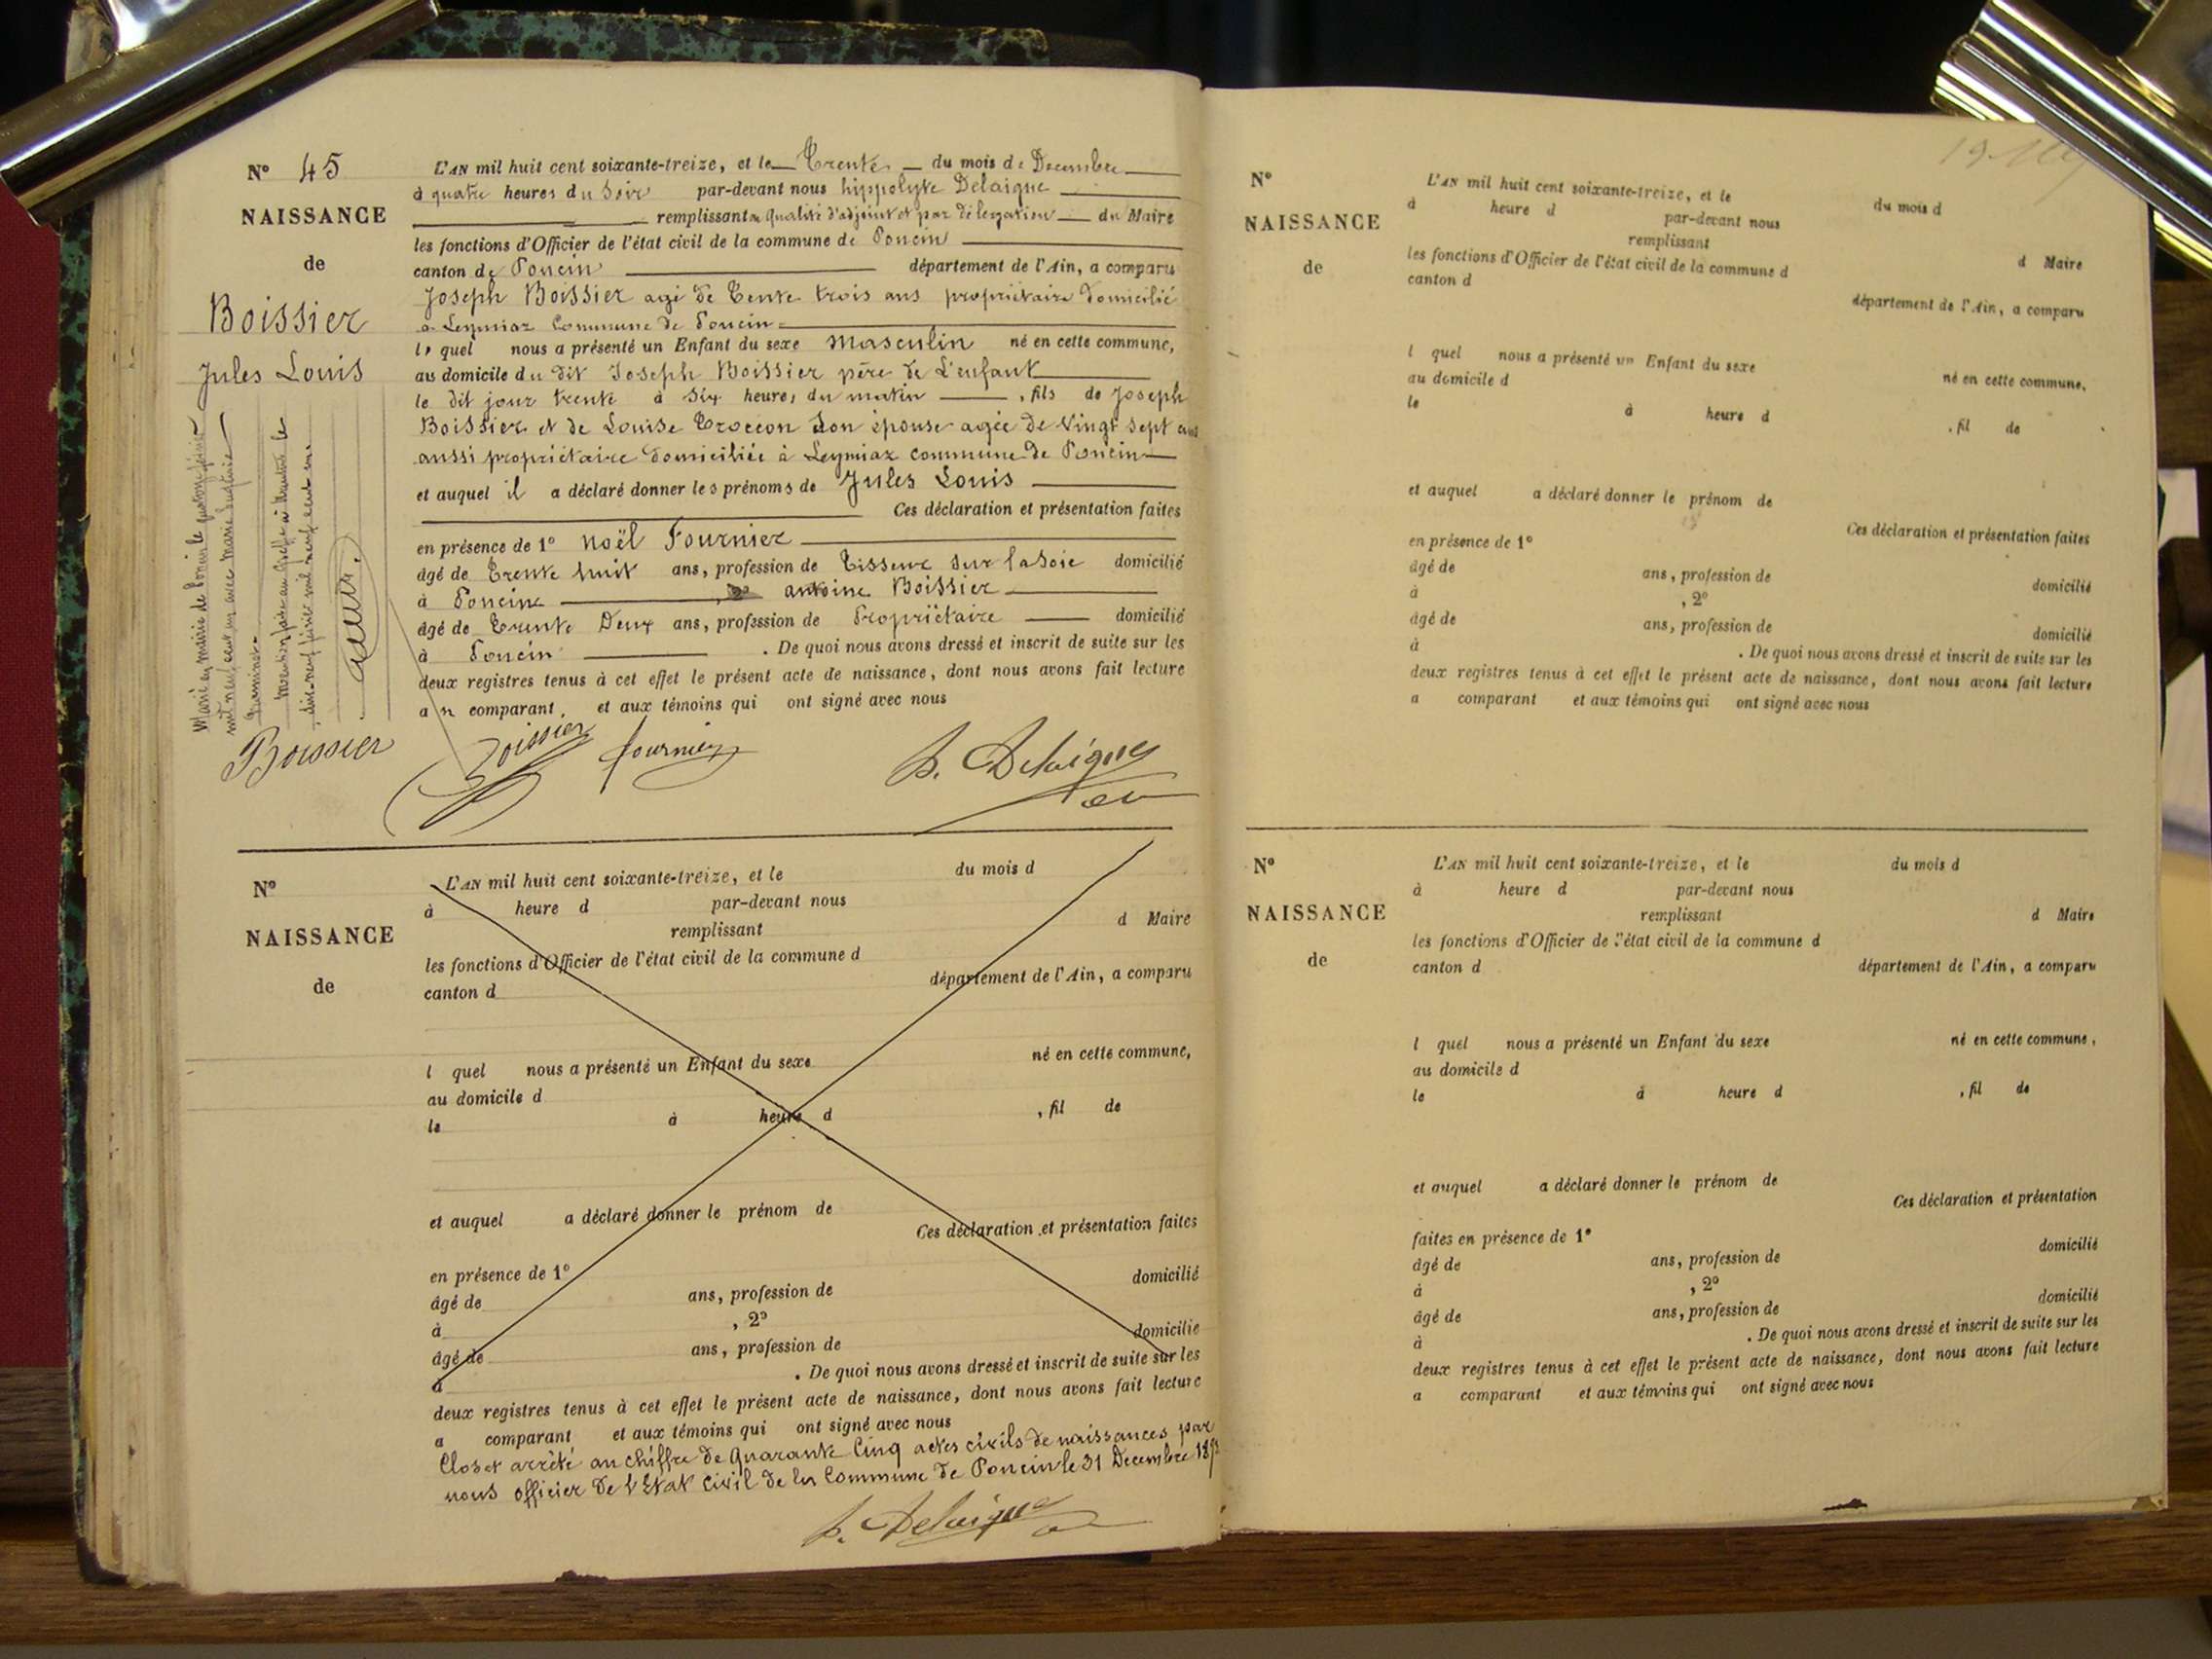 N° 45
NAISSANCE
de
Boissier
Jules Louis
L'AN mil huit cent soixante-treize, et le Trente du mois de Decembre
à quatre heures du Soir par-devant nous hippolyte Delaigue
remplissant en Qualité d'adjoint et par délégation du Maire
les fonctions d'Officier de l'état civil de la commune de Poncin
canton de Poncin département de l'Ain, a comparu
Joseph Boissier agé de Trente trois ans propriétaire domicilié
a Leymiaz Commune de Poncin
le quel nous a présenté un Enfant du sexe masculin né en cette commune,
au domicile du dit Joseph Boissier père de L'enfant
le dit jour trente à Six heures du matin , fils de Joseph
Boissier et de Louise Trocon Son épouse agée de Vingt Sept ans
aussi propriétaire domiciliée à Leymiaz commune de Poncin
et auquel il a déclaré donner les prénoms de Jules Louis
Ces déclaration et présentation faites
en présence de 1° Noël Fournier
âgé de Trente huit ans, profession de Tisseur Sur la Soie domicilié
à Poncin antoine Boissier
âgé de Trente Deux ans, profession de Propriétaire domicilié
à Poncin . De quoi nous avons dressé et inscrit de suite sur les
deux registres tenus à cet effet le présent acte de naissance, dont nous avons fait lecture
au comparant, et aux témoins qui ont signé avec nous
Marié en mairie de Poncin le quatorze février
mil neuf cent un avec Marie
Mention faite au Greffe à Nantua le
dix-neuf février mil neuf cent un.
Boissier Boissier fournier h. Delaigue
N°
NAISSANCE
de
L'AN mil huit cent soixante-treize, et le du mois d
à heure d par-devant nous
remplissant d Maire
les fonctions d'Officier de l'état civil de la commune d
canton d département de l'Ain, a comparu
l quel nous a présenté un Enfant du sexe né en cette commune,
au domicile d
le à heure d , fil de
et auquel a déclaré donner le prénom de
Ces déclaration et présentation faites
en présence de 1°
âgé de ans, profession de domicilié
à , 2°
âgé de ans, profession de domicilié
à . De quoi nous avons dressé et inscrit de suite sur les
deux registres tenus à cet effet le présent acte de naissance, dont nous avons fait lecture
a comparant et aux témoins qui ont signé avec nous
Clos et arrêté au chiffre de Quarante Cinq actes civils de naissances par
nous officier de l'Etat civil de la Commune de Poncin le 31 Decembre 1873
h. Delaigue
N°
NAISSANCE
de
L'AN mil huit cent soixante-treize, et le du mois d
à heure d par-devant nous
remplissant d Maire
les fonctions d'Officier de l'état civil de la commune d
canton d département de l'Ain, a comparu
l quel nous a présenté un Enfant du sexe né en cette commune,
au domicile d
le à heure d , fil de
et auquel a déclaré donner le prénom de
Ces déclaration et présentation faites
en présence de 1°
âgé de ans, profession de domicilié
à , 2°
âgé de ans, profession de domicilié
à . De quoi nous avons dressé et inscrit de suite sur les
deux registres tenus à cet effet le présent acte de naissance, dont nous avons fait lecture
a comparant et aux témoins qui ont signé avec nous
N°
NAISSANCE
de
L'AN mil huit cent soixante-treize, et le du mois d
à heure d par-devant nous
remplissant d Maire
les fonctions d'Officier de l'état civil de la commune d
canton d département de l'Ain, a comparu
l quel nous a présenté un Enfant du sexe né en cette commune,
au domicile d
le à heure d , fil de
et auquel a déclaré donner le prénom de
Ces déclaration et présentation
faites en présence de 1°
âgé de ans, profession de domicilié
à , 2°
âgé de ans, profession de domicilié
à . De quoi nous avons dressé et inscrit de suite sur les
deux registres tenus à cet effet le présent acte de naissance, dont nous avons fait lecture
a comparant et aux témoins qui ont signé avec nous